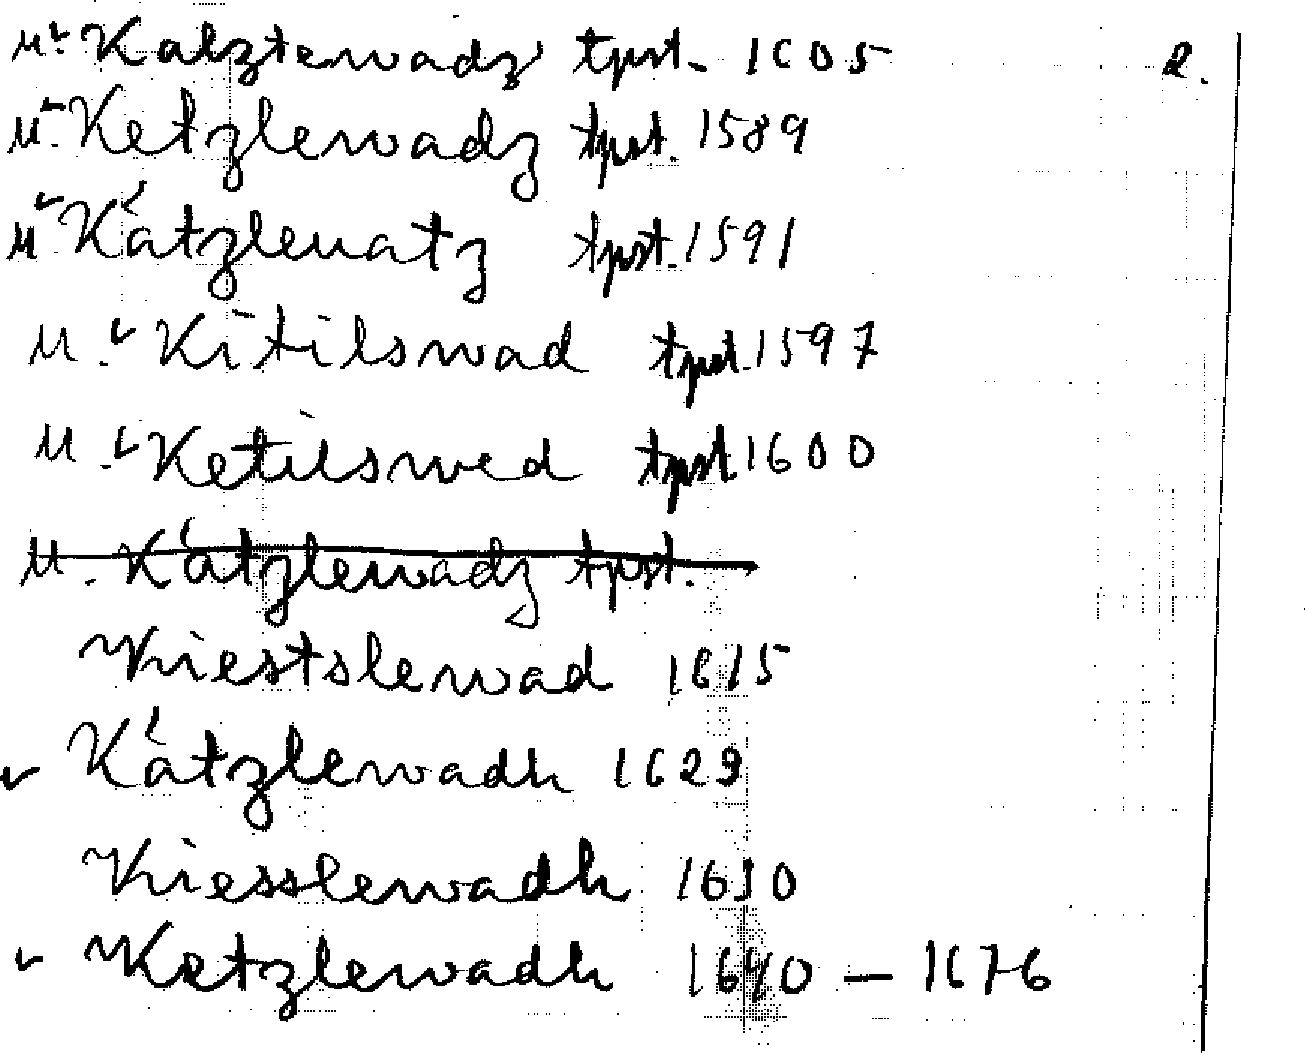 M. Kalztewadz tpst. 1605 2.
M. Ketzlewadz tpst. 1589
M. Kätzleuatz tpst. 1591
M. Kitilswad tpst. 1597
M. Ketilswed tpst 1600
M. Kätzlewadz tpst.
Kiestslewad 1615
Kätzlewadh 1629
Kiesslewadh 1630
Ketzlewadh 1640 — 1676